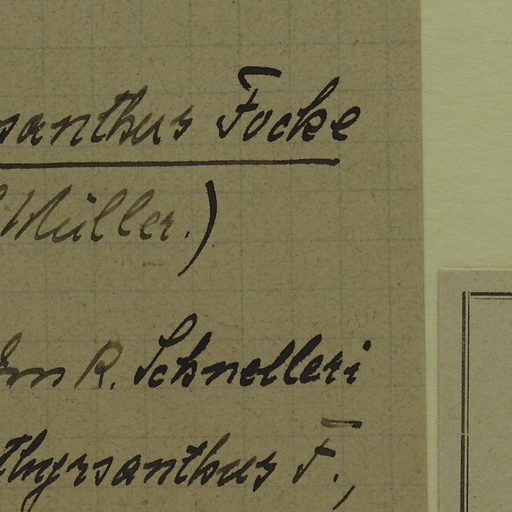 santhus Focke
Müller.)
R. Schnelleri
thyrsanthus F.,